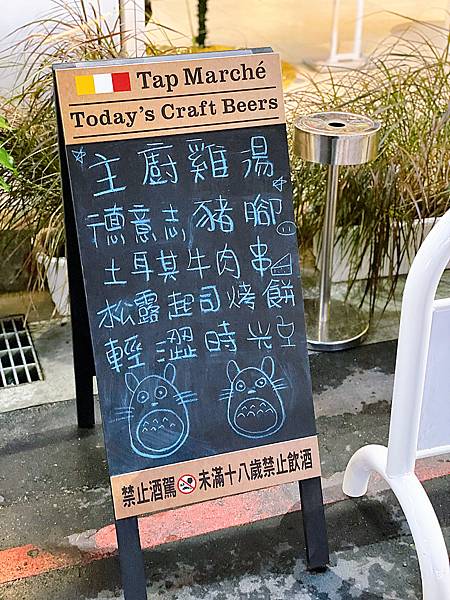 Tap Marché
Today's Craft Beers
主廚雞湯
德意志豬腳
土耳其牛肉串
松露起司烤餅
輕澀時光
禁止酒駕 未滿十八歲禁止飲酒